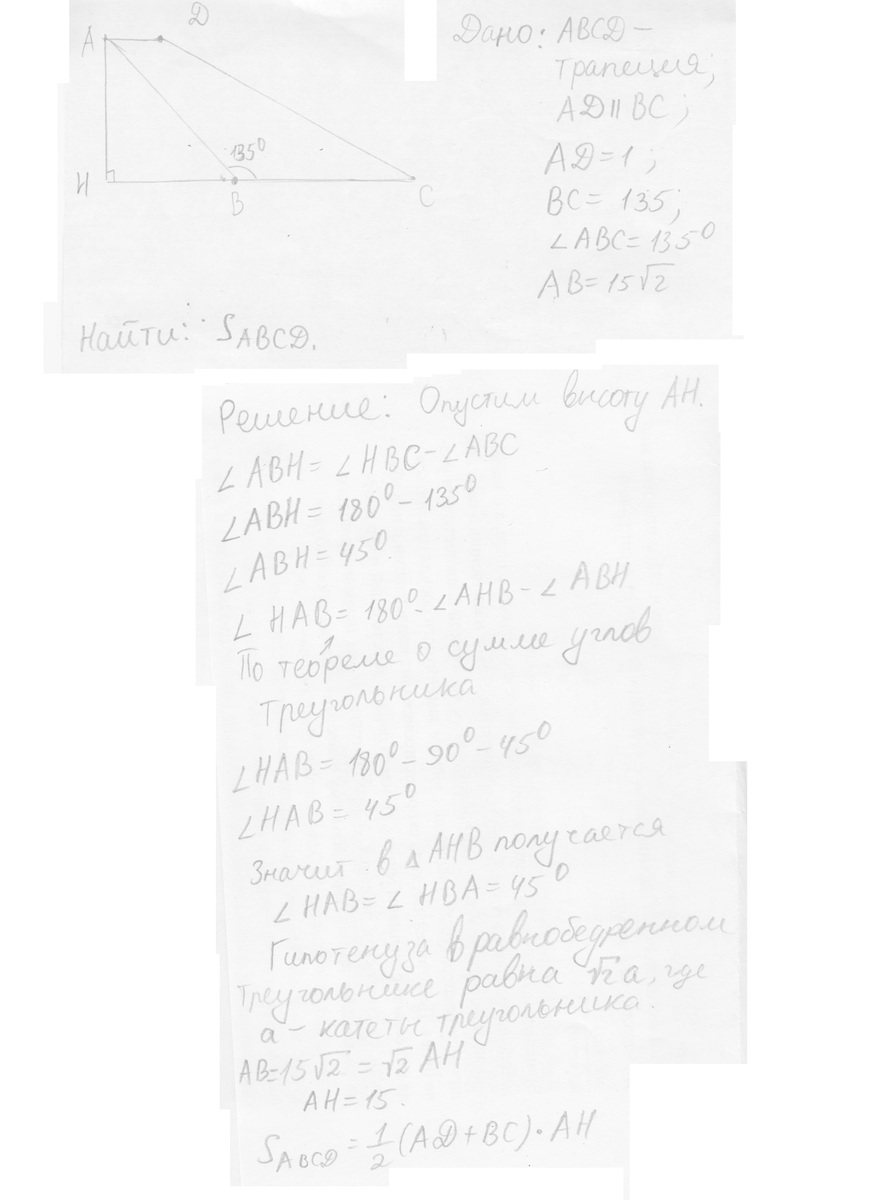 А
D
135°
H
B
C
Дано: ABCD -
трапеция;
AD || BC;
AD = 1;
BC = 135;
∠ABC = 135°
AB = 15√2
Найти: S ABCD.
Решение: Опустим высоту AH.
∠ABH = ∠HBC - ∠ABC
∠ABH = 180° - 135°
∠ABH = 45°
∠HAB = 180° - ∠AHB - ∠ABH
По теореме о сумме углов
треугольника
∠HAB = 180° - 90° - 45°
∠HAB = 45°
Значит в △AHB получается
∠HAB = ∠HBA = 45°
Гипотенуза в равнобедренном
треугольнике равна √2 a, где
a - катеты треугольника.
AB = 15√2 = √2 AH
AH = 15.
S ABCD = 1/2 (AD + BC) · AH